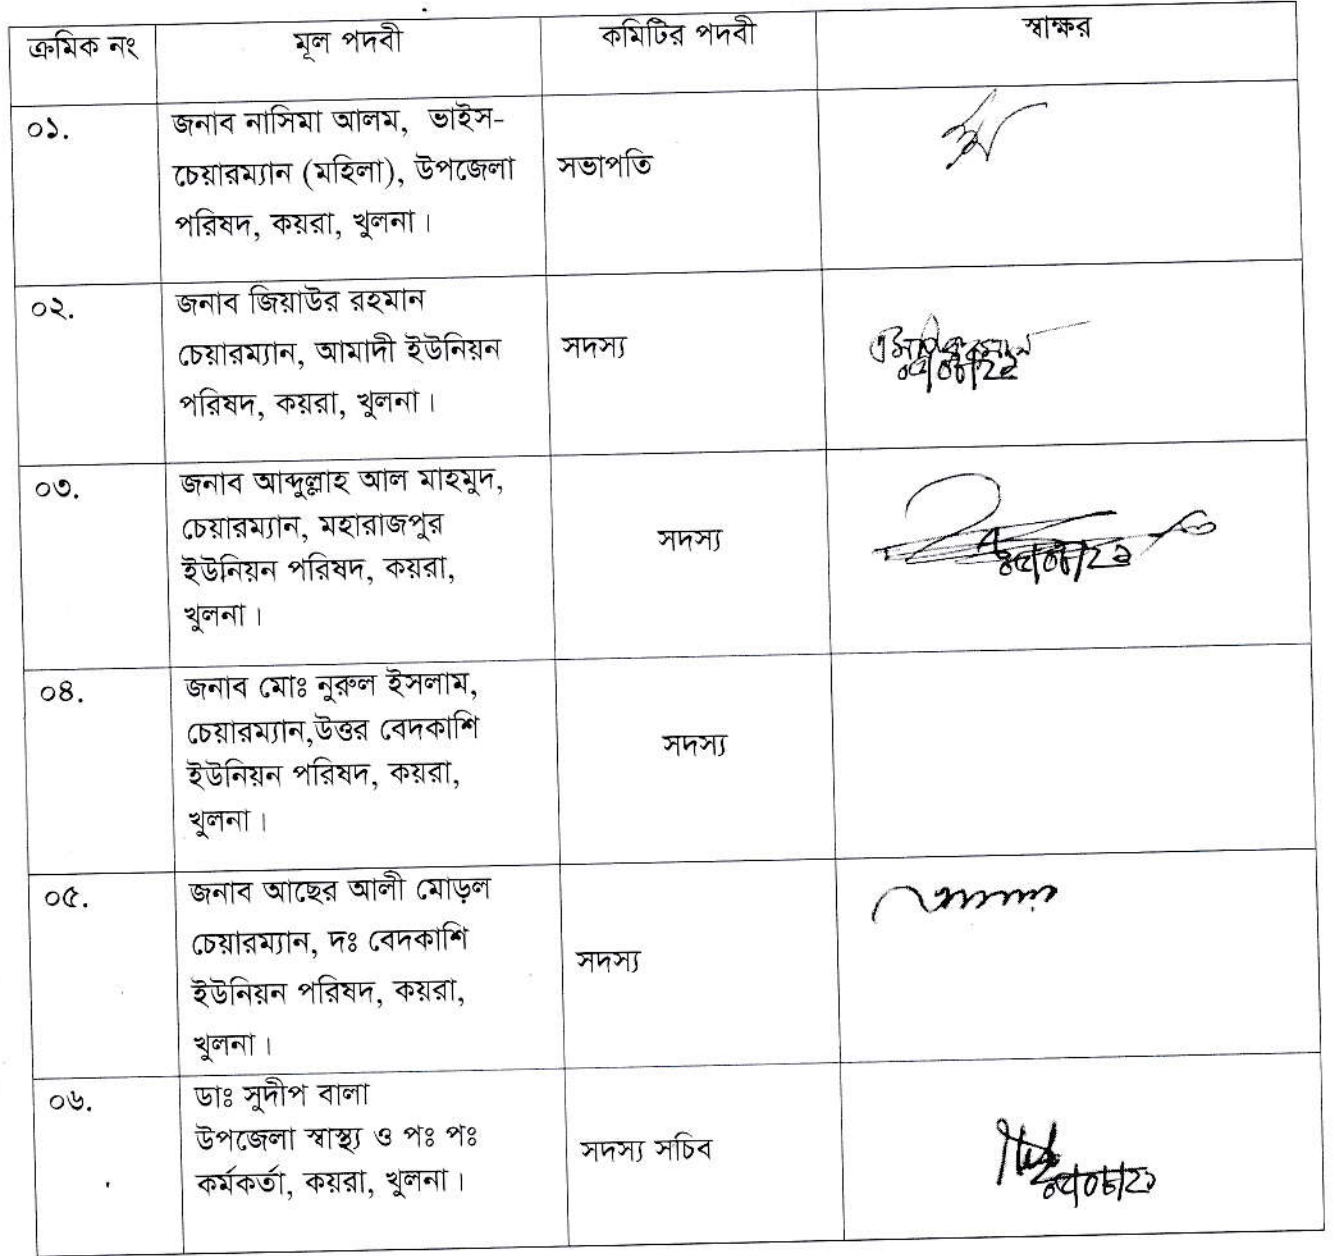 ক্রমিক নং মূল পদবী কমিটির পদবী স্বাক্ষর
০১. জনাব নাসিমা আলম, ভাইস-
চেয়ারম্যান (মহিলা), উপজেলা সভাপতি
পরিষদ, কয়রা, খুলনা।
০২. জনাব জিয়াউর রহমান
চেয়ারম্যান, আমাদী ইউনিয়ন সদস্য
পরিষদ, কয়রা, খুলনা।
০৩. জনাব আব্দুল্লাহ আল মাহমুদ,
চেয়ারম্যান, মহারাজপুর সদস্য
ইউনিয়ন পরিষদ, কয়রা,
খুলনা।
০৪. জনাব মোঃ নুরুল ইসলাম,
চেয়ারম্যান,উত্তর বেদকাশি সদস্য
ইউনিয়ন পরিষদ, কয়রা,
খুলনা।
০৫. জনাব আছের আলী মোড়ল
চেয়ারম্যান, দঃ বেদকাশি সদস্য
ইউনিয়ন পরিষদ, কয়রা,
খুলনা।
০৬. ডাঃ সুদীপ বালা
উপজেলা স্বাস্থ্য ও পঃ পঃ সদস্য সচিব
কর্মকর্তা, কয়রা, খুলনা।